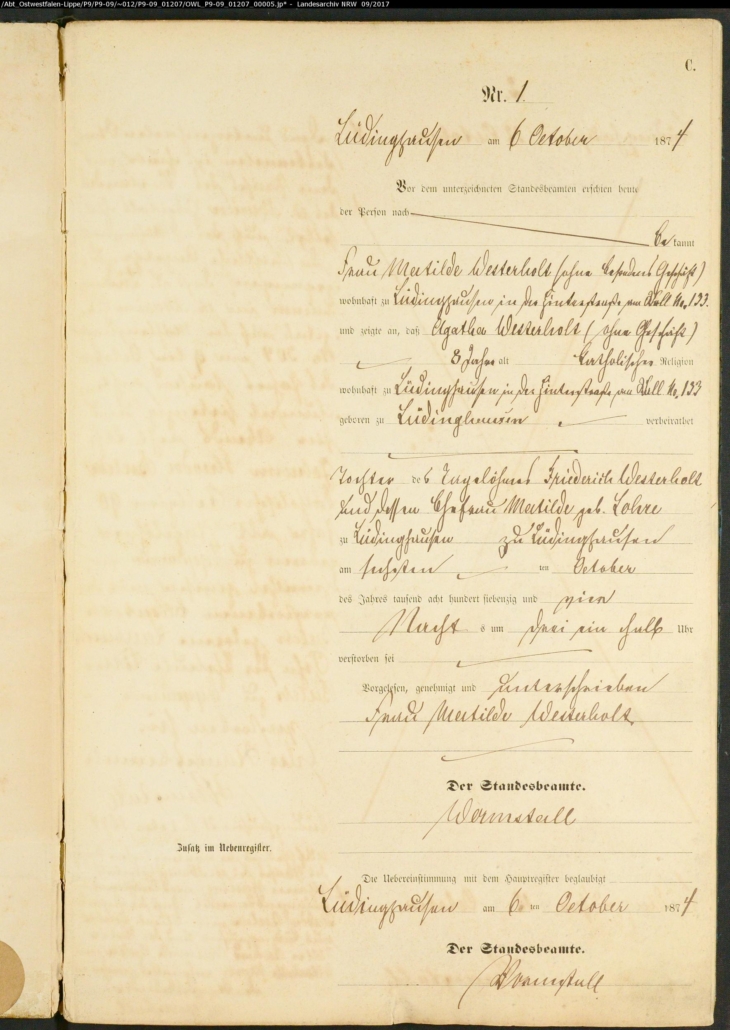 /Abt_Ostwestfalen-Lippe/P9/P9-09/~012/P9-09_01207/OWL_P9-09_01207_00005.jp* - Landesarchiv NRW 09/2017
C.
Nr. 1.
Lüdinghausen am 6 October 1874
Vor dem unterzeichneten Standesbeamten erschien heute
der Person nach
be kannt
Frau Matilde Westerholt (ohne besonderes Geschäft)
wohnhaft zu Lüdinghausen in der Hinterstraße am Wall No. 133.
und zeigte an, daß Agatha Westerholt (ohne Geschäft)
8 Jahre alt katholischer Religion
wohnhaft zu Lüdinghausen in der Hinterstraße am Wall No. 133
geboren zu Lüdinghausen verheirathet
Tochter des Tagelöhners Friederich Westerholt
und dessen Ehefrau Matilde geb. Lohre
zu Lüdinghausen zu Lüdinghausen
am sechsten ten October
des Jahres tausend acht hundert siebenzig und vier
Nacht s um drei ein halb Uhr
verstorben sei
Vorgelesen, genehmigt und unterschrieben
Frau Matilde Westerholt
Der Standesbeamte.
Wormstall
Zusatz im Nebenregister.
Die Uebereinstimmung mit dem Hauptregister beglaubigt
Lüdinghausen am 6 ten October 1874
Der Standesbeamte.
Wormstall